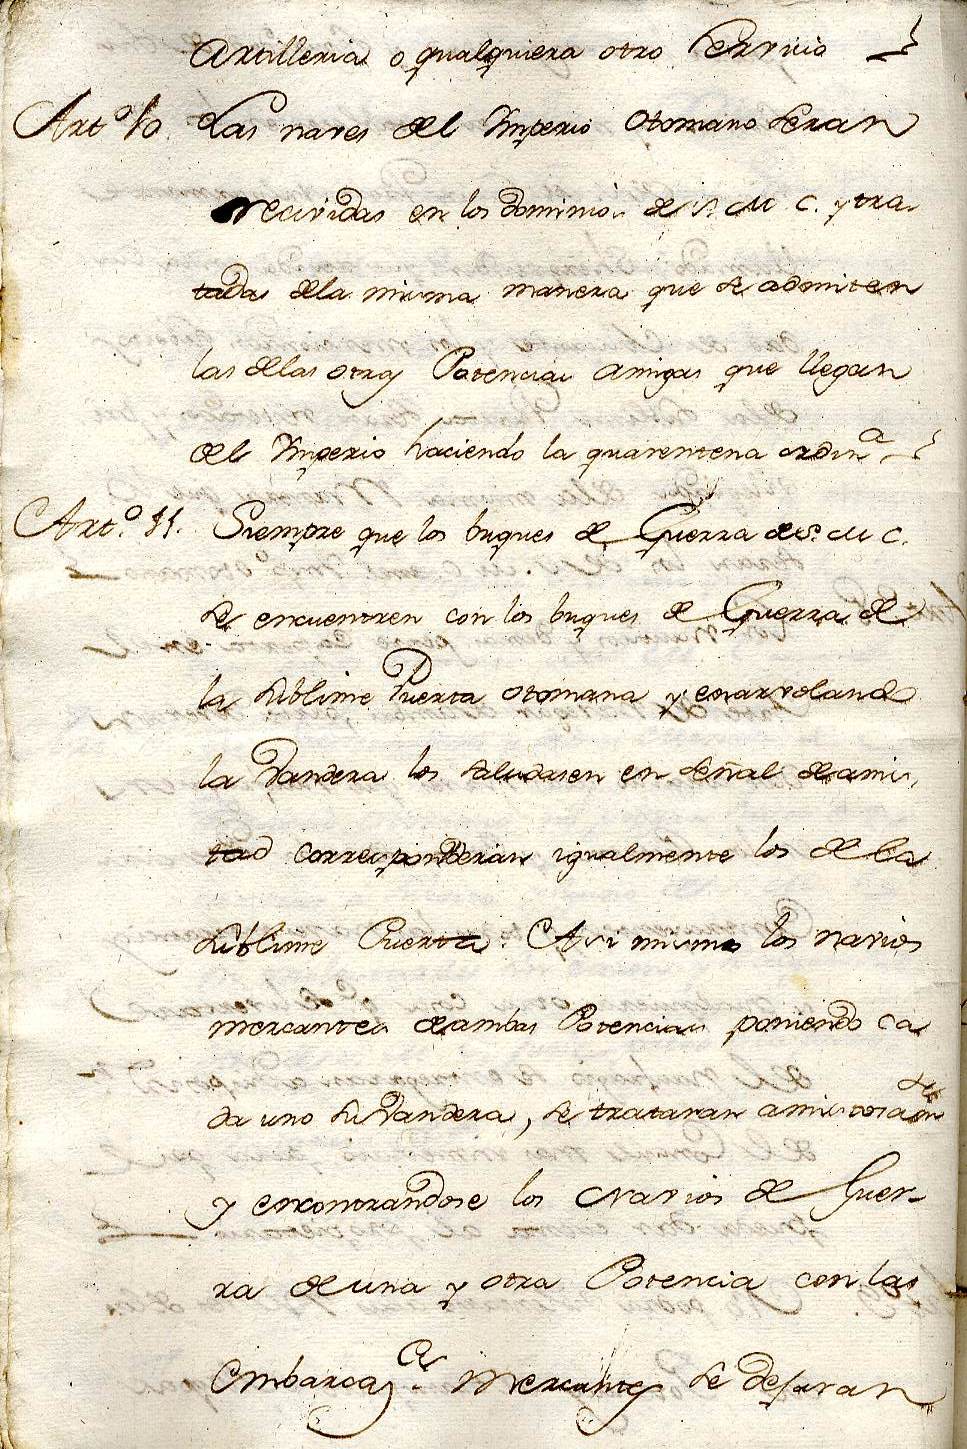 Artilleria o qualquiera otro servicio
Art.º 10. Las naves del Imperio Otomano seran
recividas en los dominios de S. M. C. y tra-
tadas dela misma manera que se admiten
las delas otras Potencias amigas que llegan
del Imperio haciendo la quarentena ordin.ª
Art.º 11. Siempre que los buques de Guerra de S. M. C.
se encuentren con los buques de Guerra de
la Sublime Puerta otomana y enarvolando
la vandera los saludasen en señal de amis-
tad corresponderán igualmente los de la
Sublime Puerta. Asi mismo los navios
mercantes de ambas Potencias poniendo ca
da uno su vandera, se trataran amistosam.te
y encontrandose los Navios de Guer-
ra de una y otra Potencia con las
Embarcaz.es Mercantes se dejaran